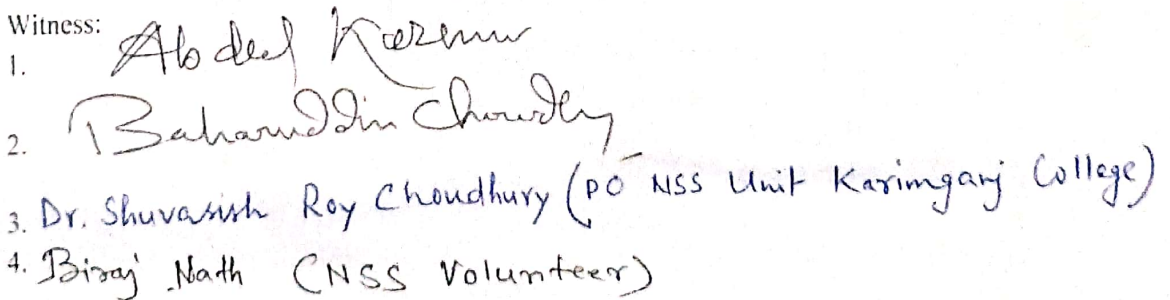 Witness:
1. Abdul Karim
2. Baharuddin Choudhury
3. Dr. Shuvasish Roy Choudhury (PO NSS Unit Karimganj College)
4. Biraj Nath (NSS Volunteer)